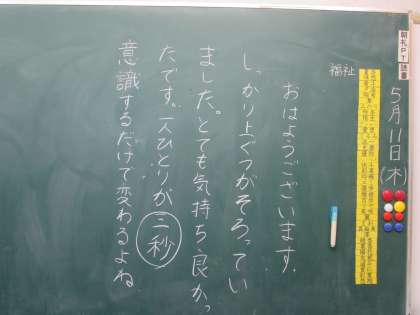 朝礼PT
読書
5月11日(木)
福祉
おはようございます。
しっかり上ぐつがそろってい
ました。とても気持ち良かっ
たです。一人ひとりが三秒
意識するだけで変わるよね